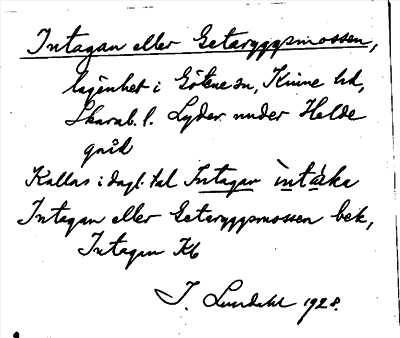 Intagan eller Getaryggsmossen,
lägenhet i Götene sn, Kinne hd,
Skarab. l. Lyder under Helde
gård
Kallas i dagl. tal Intagan
Intagan eller Getaryggsmossen bek,
Intagan Kb
J. Lundahl 1928.